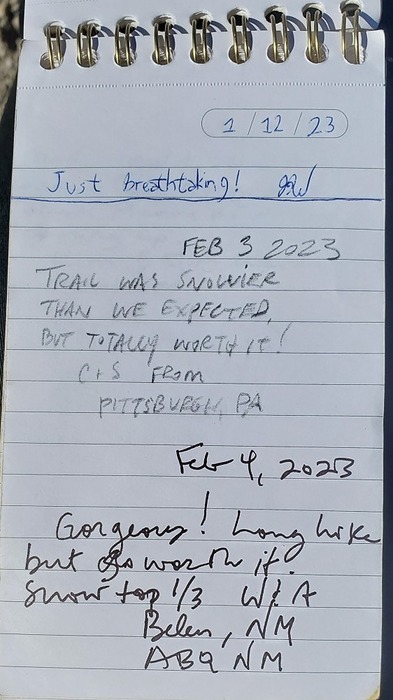 1/12/23
Just breathtaking! JRW
FEB 3 2023
TRAIL WAS SNOWIER
THAN WE EXPECTED,
BUT TOTALLY WORTH IT!
C+S FROM
PITTSBURGH, PA
Feb 4, 2023
Gorgeous! Long hike
but so worth it.
Snow top 1/3 W & A
Belen, NM
ABQ NM